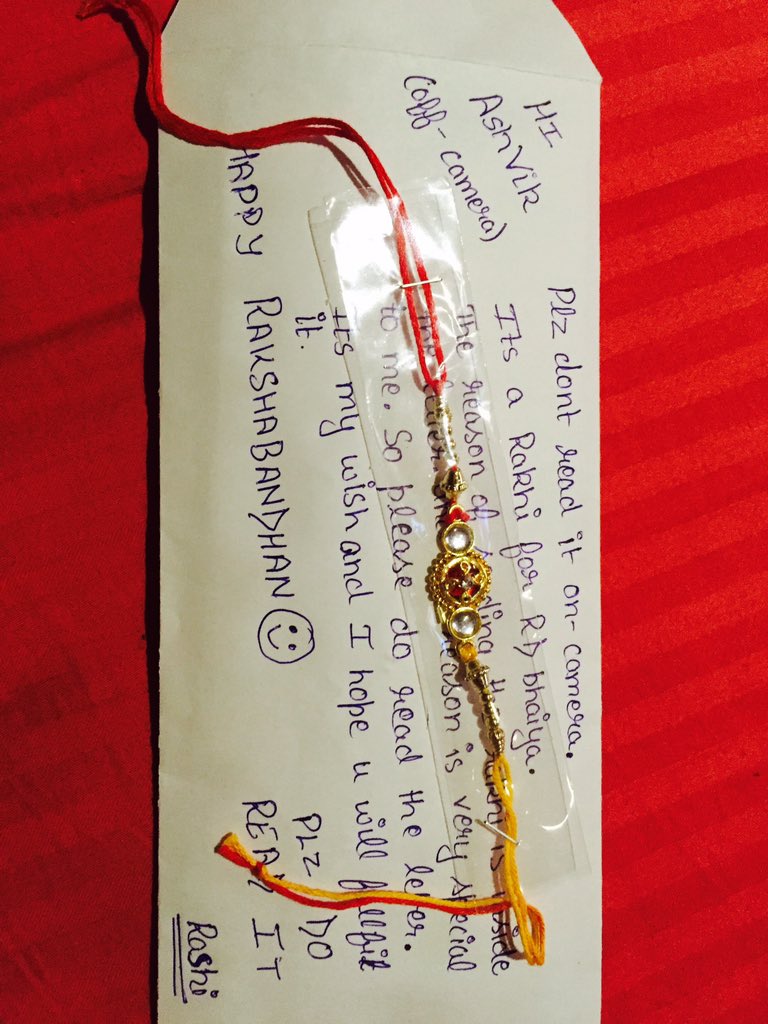 HI
Ashvik
(off-camera)
Plz dont read it on-camera.
Its a Rakhi for RD bhaiya.
The reason of is inside
the reason is very special
to me. So please do read the leter.
Its my wish and I hope u will fullfil
it.
HAPPY RAKSHABANDHAN
PLZ DO
READ IT
Rashi